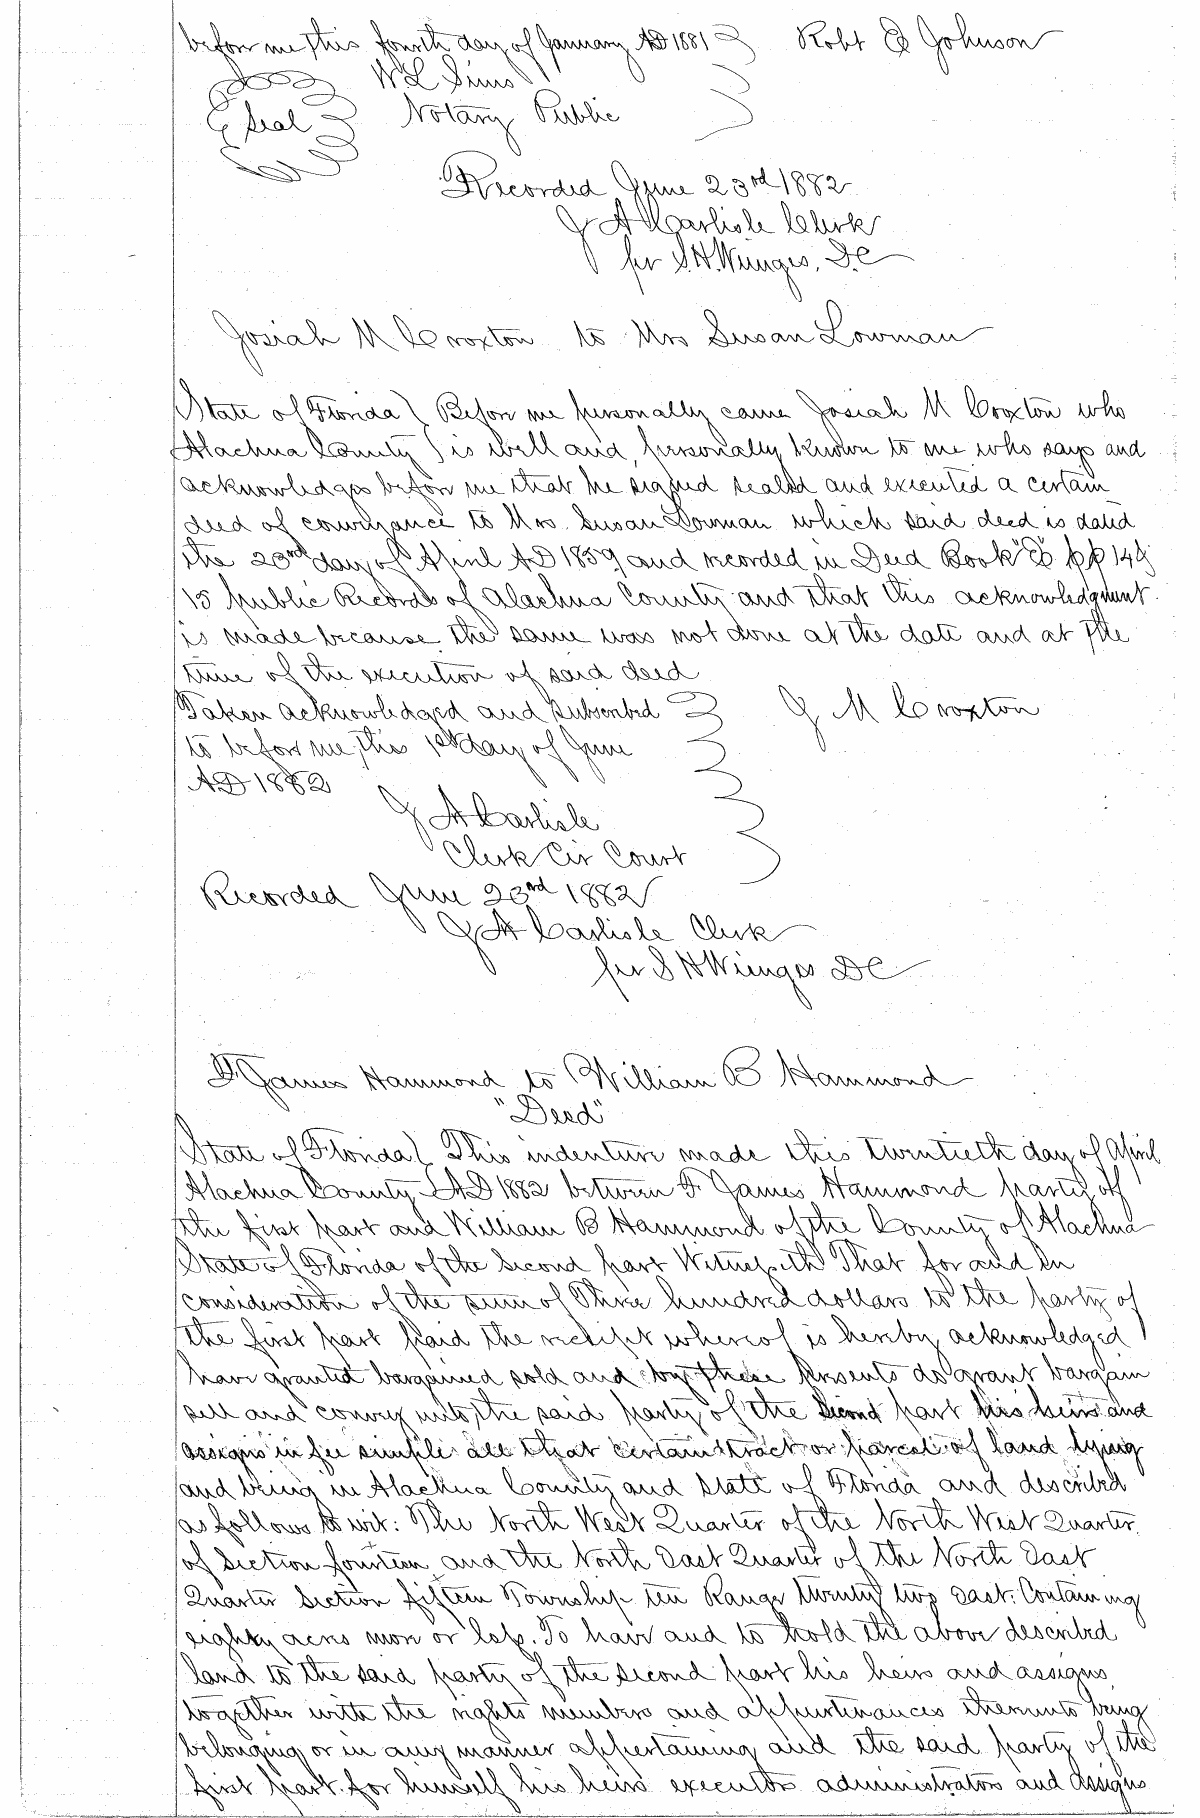 before me this fourth day of January AD 1881 Robt E Johnson
W L Sims
Seal Notary Public
Recorded June 23rd 1882
J A Carlisle Clerk
per S.H. Wienges, D.C
Josiah M Croxton to Mrs Susan Lowman
State of Florida } Before me personally came Josiah M Croxton who
Alachua County } is well and personally known to me who says and
acknowledges before me that he signed sealed and executed a certain
deed of conveyance to Mrs. Susan Lowman which said deed is dated
the 23rd day of April AD 1859 and recorded in Deed Book pp 149
15 public Records of Alachua County and that this acknowledgment
is made because the same was not done at the date and at the
time of the execution of said deed
Taken acknowledged and subscribed J M Croxton
to before me, this 1st day of June
AD 1882
J A Carlisle
Clerk Cir Court
Recorded June 23rd 1882
J A Carlisle Clerk
per S H Wienges DC
F James Hammond to William B Hammond
"Deed"
State of Florida } This indenture made this twentieth day of April
Alachua County } AD 1882 between F. James Hammond party of
the first part and William B Hammond of the County of Alachua
State of Florida of the second part Witnesseth That for and in
consideration of the sum of Three hundred dollars to the party of
the first part paid the receipt whereof is hereby acknowledged
have granted bargained sold and by these presents do grant bargain
sell and convey unto the said party of the second part his heirs and
assigns in fee simple all that certain tract or parcel of land lying
and being in Alachua County and State of Florida and described
as follows to wit: The North West Quarter of the North West Quarter
of Section fourteen and the North East Quarter of the North East
Quarter Section fifteen Township ten Range twenty two East: Containing
eighty acres more or less. To have and to hold the above described
land to the said party of the second part his heirs and assigns
together with the rights members and appurtenances thereunto being
belonging or in any manner appertaining and the said party of the
first part for himself his heirs executors administrators and assigns